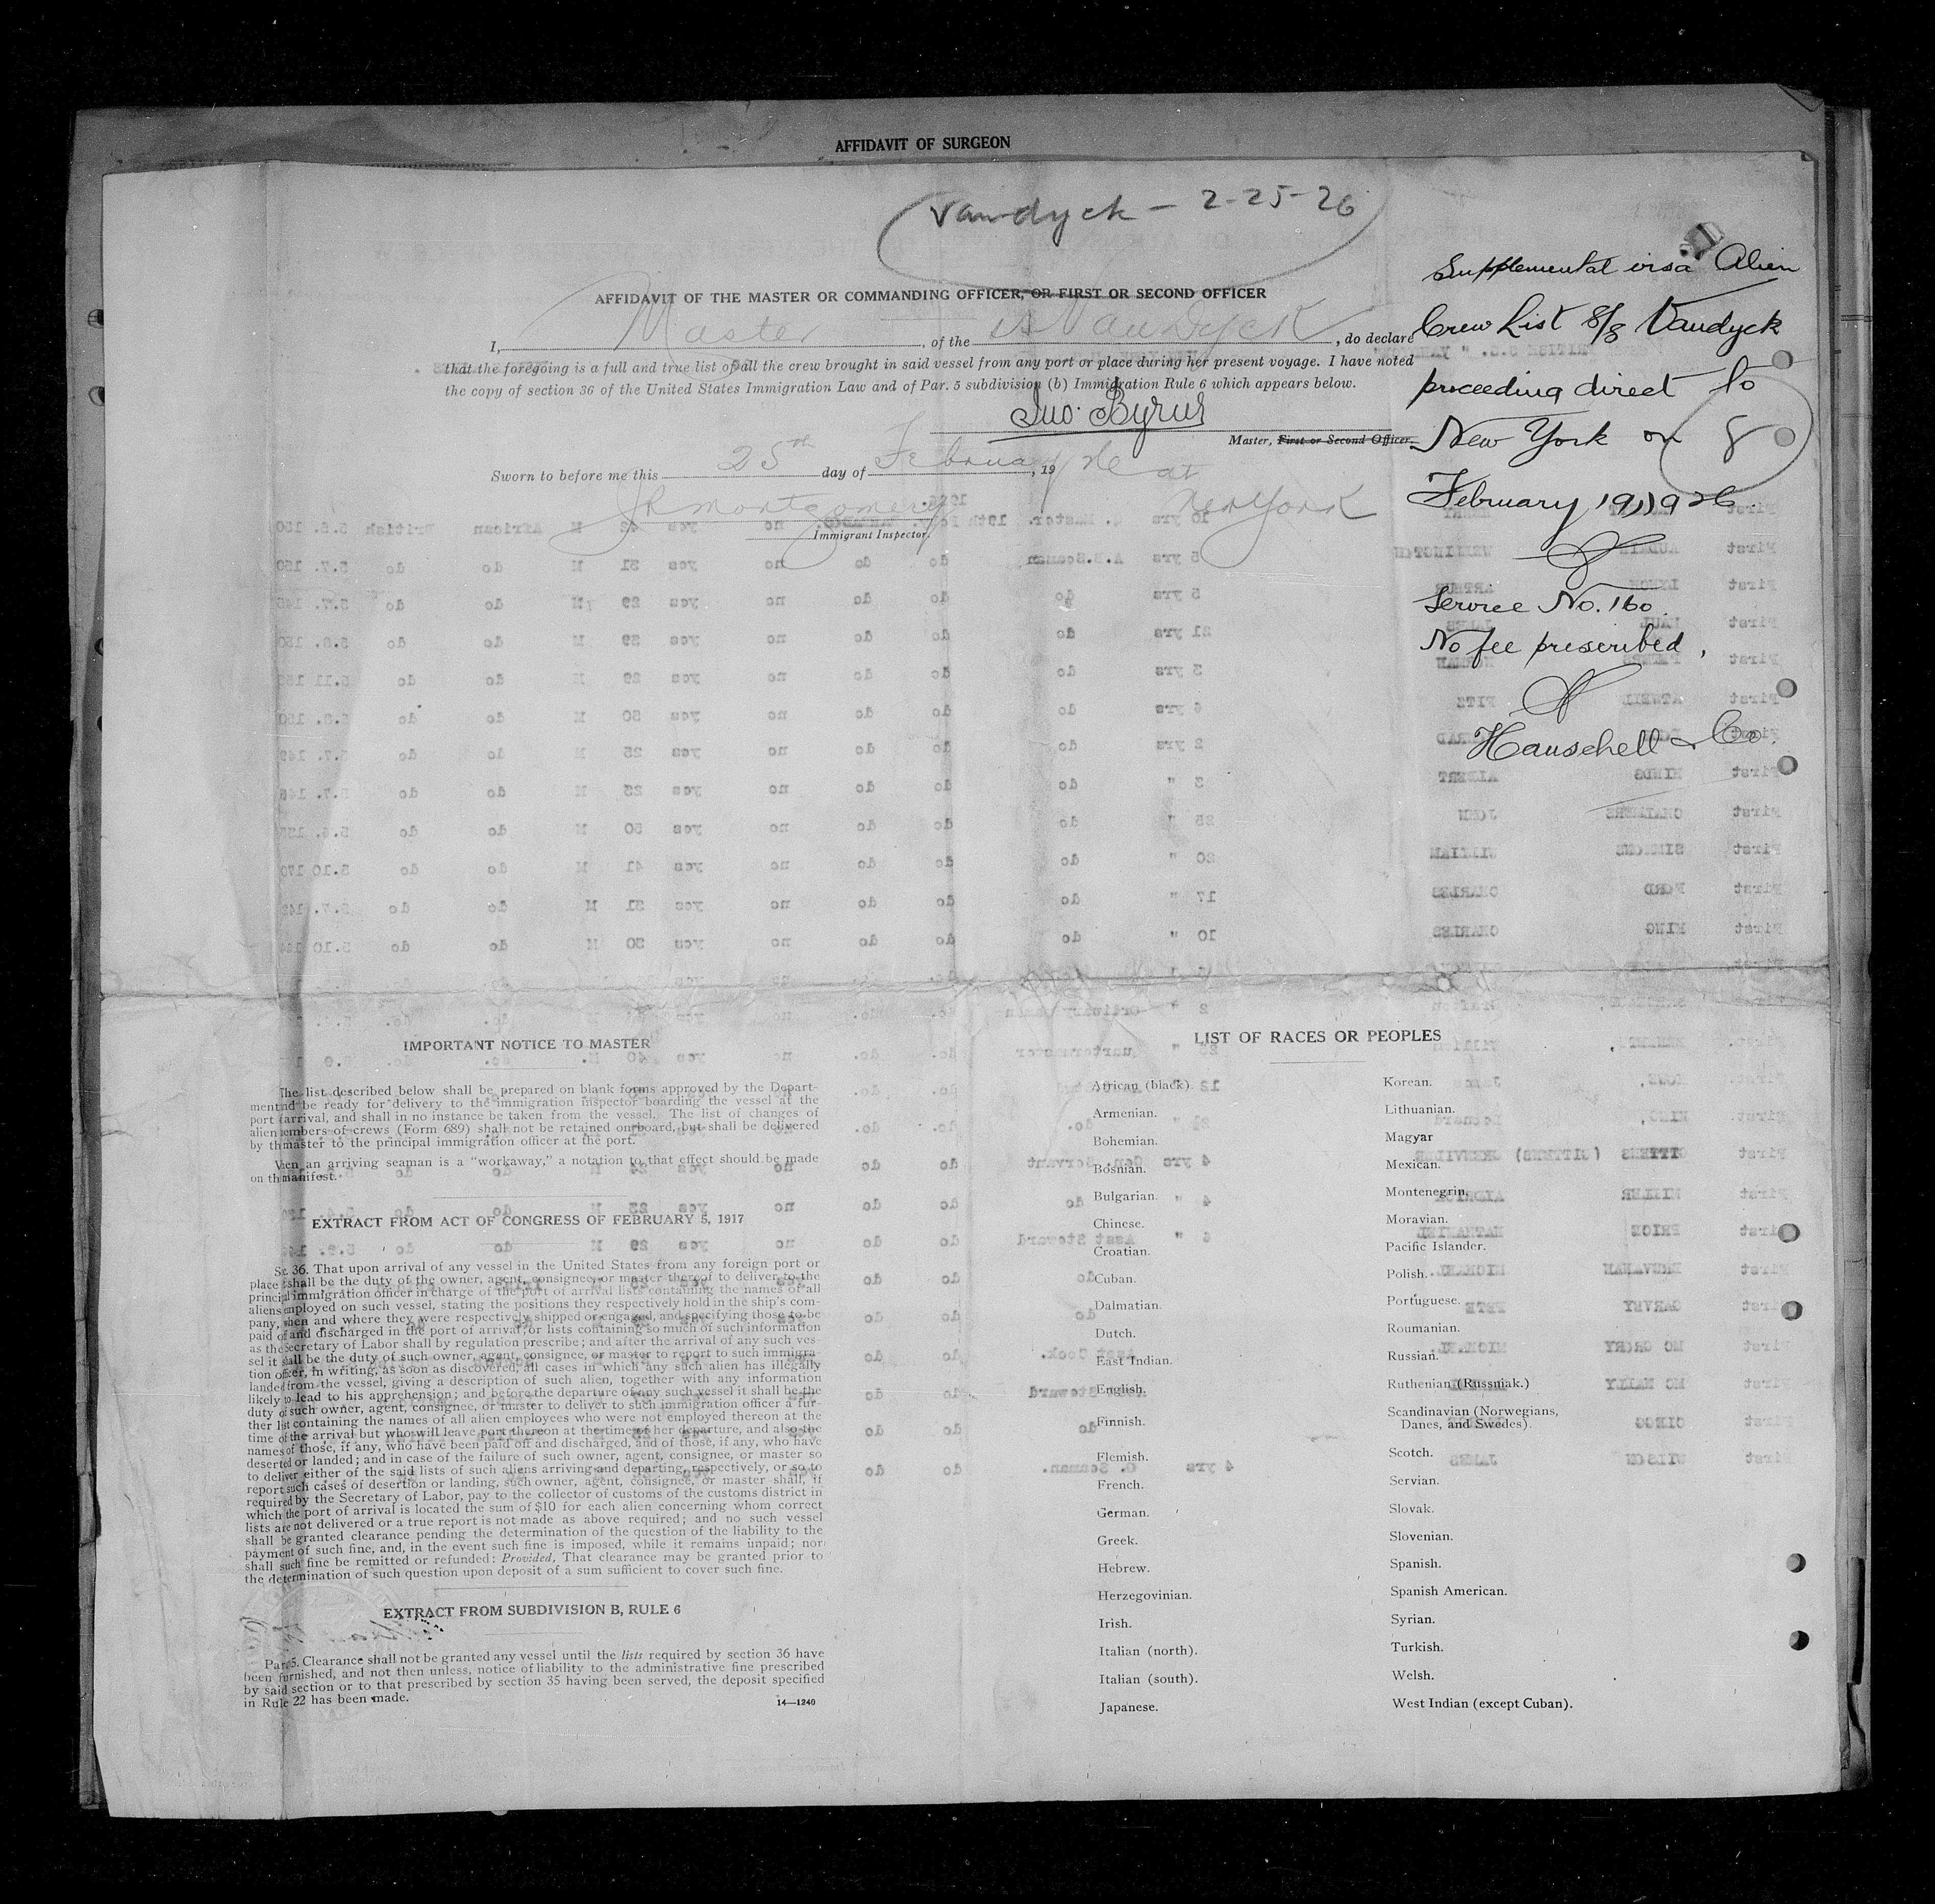 AFFIDAVIT OF SURGEON
Vandyck - 2-25-26
AFFIDAVIT OF THE MASTER OR COMMANDING OFFICER, OR FIRST OR SECOND OFFICER
I, Master, of the SS Vandyck, do declare
that the foregoing is a full and true list of all the crew brought in said vessel from any port or place during her present voyage. I have noted
the copy of section 36 of the United States Immigration Law and of Par. 5 subdivision (b) Immigration Rule 6 which appears below.
Jno. Byrne
Master, First or Second Officer.
Sworn to before me this 25th day of February, 1926 at
New York
Immigrant Inspector.
Supplemental visa Alien
Crew List S/S Vandyck
proceeding direct to
New York on
February 19, 1926
Service No. 160.
No fee prescribed,
8
IMPORTANT NOTICE TO MASTER
The list described below shall be prepared on blank forms approved by the Depart-
ment and be ready for delivery to the immigration inspector boarding the vessel at the
port arrival, and shall in no instance be taken from the vessel. The list of changes of
alien members of crews (Form 689) shall not be retained on board, but shall be delivered
by th master to the principal immigration officer at the port.
When an arriving seaman is a “workaway,” a notation to that effect should be made
on th manifest.
EXTRACT FROM ACT OF CONGRESS OF FEBRUARY 5, 1917
Se. 36. That upon arrival of any vessel in the United States from any foreign port or
place shall be the duty of the owner, agent, consignee, or master thereof to deliver to the
principal immigration officer in charge of the port of arrival lists containing the names of all
aliens employed on such vessel, stating the positions they respectively hold in the ship's com-
pany, when and where they were respectively shipped or engaged, and specifying those to be
paid off and discharged in the port of arrival; or lists containing so much of such information
as the Secretary of Labor shall by regulation prescribe; and after the arrival of any such ves-
sel it shall be the duty of such owner, agent, consignee, or master to report to such immigra-
tion officer, in writing, as soon as discovered, all cases in which any such alien has illegally
landed from the vessel, giving a description of such alien, together with any information
likely to lead to his apprehension; and before the departure of any such vessel it shall be the
duty of such owner, agent, consignee, or master to deliver to such immigration officer a fur-
ther list containing the names of all alien employees who were not employed thereon at the
time of the arrival but who will leave port thereon at the time of her departure, and also the
names of those, if any, who have been paid off and discharged, and of those, if any, who have
deserted or landed; and in case of the failure of such owner, agent, consignee, or master so
to deliver either of the said lists of such aliens arriving and departing, respectively, or so to
report such cases of desertion or landing, such owner, agent, consignee, or master shall, if
required by the Secretary of Labor, pay to the collector of customs of the customs district in
which the port of arrival is located the sum of $10 for each alien concerning whom correct
lists are not delivered or a true report is not made as above required; and no such vessel
shall be granted clearance pending the determination of the question of the liability to the
payment of such fine, and, in the event such fine is imposed, while it remains unpaid; nor
shall such fine be remitted or refunded: Provided, That clearance may be granted prior to
the determination of such question upon deposit of a sum sufficient to cover such fine.
EXTRACT FROM SUBDIVISION B, RULE 6
Par. 5. Clearance shall not be granted any vessel until the lists required by section 36 have
been furnished, and not then unless, notice of liability to the administrative fine prescribed
by said section or to that prescribed by section 35 having been served, the deposit specified
in Rule 22 has been made.
14—1240
LIST OF RACES OR PEOPLES
African (black).
Armenian.
Bohemian.
Bosnian.
Bulgarian.
Chinese.
Croatian.
Cuban.
Dalmatian.
Dutch.
East Indian.
English.
Finnish.
Flemish.
French.
German.
Greek.
Hebrew.
Herzegovinian.
Irish.
Italian (north).
Italian (south).
Japanese.
Korean.
Lithuanian.
Magyar
Mexican.
Montenegrin.
Moravian.
Pacific Islander.
Polish.
Portuguese.
Roumanian.
Russian.
Ruthenian (Russniak.)
Scandinavian (Norwegians,
Danes, and Swedes).
Scotch.
Servian.
Slovak.
Slovenian.
Spanish.
Spanish American.
Syrian.
Turkish.
Welsh.
West Indian (except Cuban).